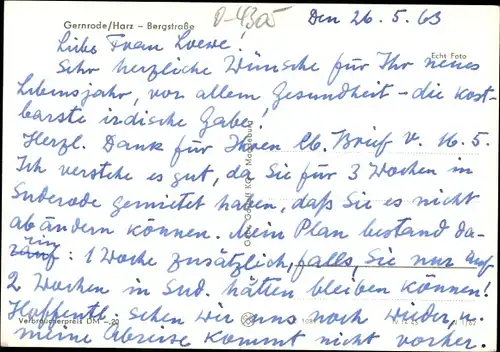 Gernrode/Harz – Bergstraße
D-43a
Den 26.5.63
Liebe Frau Loewe!
Echt Foto
Sehr herzliche Wünsche für Ihr neues
Lebensjahr, vor allem Gesundheit - die kost-
barste irdische Gabe!
Herzl. Dank für Ihren lb. Brief v. 16.5.
Ich verstehe es gut, da Sie für 3 Wochen in
Suderode gemietet haben, daß Sie es nicht
abändern können. Mein Plan bestand da-
rin: 1 Woche zusätzlich, falls Sie nur auf
2 Wochen in Sud. hätten bleiben können!
Hoffentl. sehen wir uns noch wieder, u.
meine Abreise kommt nicht vorher.
Verbraucherpreis DM -,20